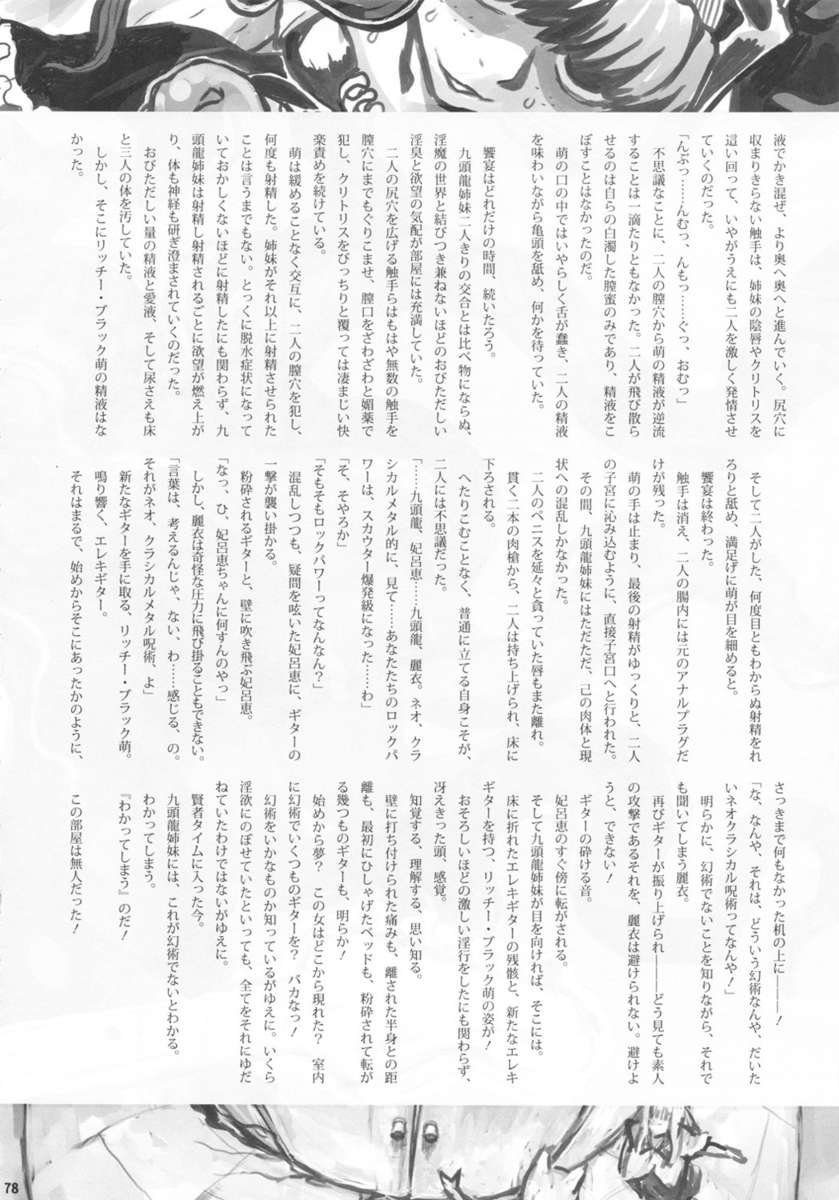 液でかき混ぜ、より奥へ奥へと進んでいく。尻穴に
収まりきらない触手は、姉妹の陰唇やクリトリスを
這い回って、いやがうえにも二人を激しく発情させ
ていくのだった。
「んぷっ……んむっ、んもっ……ぐっ、おむっ」
不思議なことに、二人の膣穴から萌の精液が逆流
することは一滴たりともなかった。二人が飛び散ら
せるのは自らの白濁した膣蜜のみであり、精液をこ
ぼすことはなかったのだ。
萌の口の中ではいやらしく舌が蠢き、二人の精液
を味わいながら亀頭を舐め、何かを待っていた。
饗宴はどれだけの時間、続いたろう。
九頭龍姉妹二人きりの交合とは比べ物にならぬ、
淫魔の世界と結びつき兼ねないほどのおびただしい
淫臭と欲望の気配が部屋には充満していた。
二人の尻穴を広げる触手らはもはや無数の触手を
膣穴にまでもぐりこませ、膣口をざわざわと媚薬で
犯し、クリトリスをびっちりと覆っては凄まじい快
楽責めを続けている。
萌は緩めることなく交互に、二人の膣穴を犯し、
何度も射精した。姉妹がそれ以上に射精させられた
ことは言うまでもない。とっくに脱水症状になって
いておかしくないほどに射精したにも関わらず、九
頭龍姉妹は射精し射精されるごとに欲望が燃え上が
り、体も神経も研ぎ澄まされていくのだった。
おびただしい量の精液と愛液、そして尿さえも床
と三人の体を汚していた。
しかし、そこにリッチー・ブラック萌の精液はな
かった。
そして二人がした、何度目ともわからぬ射精をれ
ろりと舐め、満足げに萌が目を細めると。
饗宴は終わった。
触手は消え、二人の腸内には元のアナルプラグだ
けが残った。
萌の手は止まり、最後の射精がゆっくりと、二人
の子宮に沁み込むように、直接子宮口へと行われた。
その間、九頭龍姉妹にはただただ、己の肉体と現
状への混乱しかなかった。
二人のペニスを延々と貪っていた唇もまた離れ、
貫く二本の肉槍から、二人は持ち上げられ、床に
下ろされる。
へたりこむことなく、普通に立てる自身こそが、
二人には不思議だった。
「……九頭龍、妃呂恵……九頭龍、麗衣。ネオ、クラ
シカルメタル的に、見て……あなたたちのロックパ
ワーは、スカウター爆発級になった……わ」
「そ、そやろか」
「そもそもロックパワーってなんなん？」
混乱しつつも、疑問を呟いた妃呂恵に、ギターの
一撃が襲い掛かる。
粉砕されるギターと、壁に吹き飛ぶ妃呂恵。
「なっ、ひ、妃呂恵ちゃんに何すんのやっ」
しかし、麗衣は奇怪な圧力に飛び掛ることもできない。
「言葉は、考えるんじゃ、ない、わ……感じる、の。
それがネオ、クラシカルメタル呪術、よ」
新たなギターを手に取る、リッチー・ブラック萌。
鳴り響く、エレキギター。
それはまるで、始めからそこにあったかのように、
さっきまで何もなかった机の上に―――！
「な、なんや、それは、どういう幻術なんや、だいた
いネオクラシカル呪術ってなんや！」
明らかに、幻術でないことを知りながら、それで
も聞いてしまう麗衣。
再びギターが振り上げられ――どう見ても素人
の攻撃であるそれを、麗衣は避けられない。避けよ
うと、できない！
ギターの砕ける音。
妃呂恵のすぐ傍に転がされる。
そして九頭龍姉妹が目を向ければ、そこには。
床に折れたエレキギターの残骸と、新たなエレキ
ギターを持つ、リッチー・ブラック萌の姿が！
おそろしいほどの激しい淫行をしたにも関わらず、
冴えきった頭、感覚。
知覚する、理解する、思い知る。
壁に打ち付けられた痛みも、離された半身との距
離も、最初にひしゃげたベッドも、粉砕されて転が
る幾つものギターも、明らか！
始めから夢？　この女はどこから現れた？　室内
に幻術でいくつものギターを？　バカなっ！
幻術をいかなものか知っているがゆえに。いくら
淫欲にのぼせていたといっても、全てをそれにゆだ
ねていたわけではないがゆえに。
賢者タイムに入った今。
九頭龍姉妹には、これが幻術でないとわかる。
わかってしまう。
『わかってしまう』のだ！
この部屋は無人だった！
78